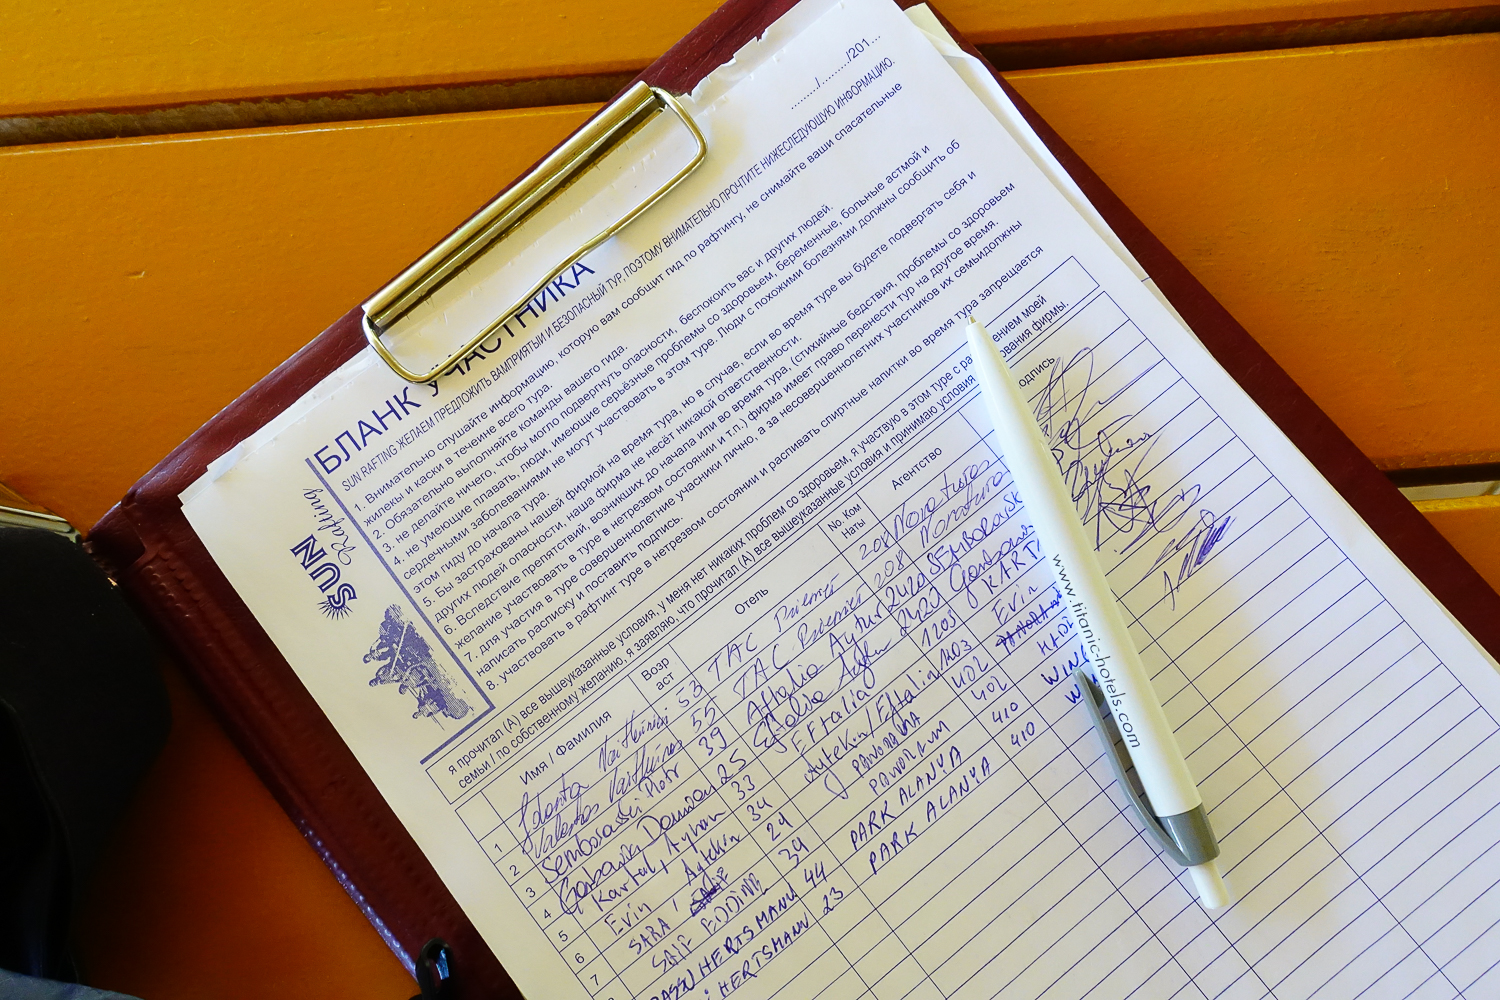 ......../........./201...
БЛАНК УЧАСТНИКА
SUN RAFTING ЖЕЛАЕМ ПРЕДЛОЖИТЬ ВАМПРИЯТЫЙ И БЕЗОПАСНЫЙ ТУР, ПОЭТОМУ ВНИМАТЕЛЬНО ПРОЧТИТЕ НИЖЕСЛЕДУЮЩУЮ ИНФОРМАЦИЮ.
1. Внимательно слушайте информацию, которую вам сообщит гид по рафтингу, не снимайте ваши спасательные
жилеты и каски в течение всего тура.
2. Обязательно выполняйте команды вашего гида.
3. не делайте ничего, чтобы могло подвергнуть опасности, беспокоить вас и других людей.
4. не умеющие плавать, люди, имеющие серьёзные проблемы со здоровьем, беременные, больные астмой и
сердечными заболеваниями не могут участвовать в этом туре. Люди с похожими болезнями должны сообщить об
этом гиду до начала тура.
5. Бы застрахованы нашей фирмой на время тура, но в случае, если во время туре вы будете подвергать себя и
других людей опасности, наша фирма не несёт никакой ответственности.
6. Вследствие препятствий, возникших до начала или во время тура, (стихийные бедствия, проблемы со здоровьем
желание участвовать в туре в нетрезвом состоянии и т.п.) фирма имеет право перенести тур на другое время.
7. для участия в туре совершеннолетние учасники лично, а за несовершеннолетних участников их семьидолжны
написать расписку и поставить подпись.
8. участвовать в рафтинг туре в нетрезвом состоянии и распивать спиртные напитки во время тура запрещается
SUN
Rafting
я прочитал (А) все вышеуказанные условия, у меня нет никаких проблем со здоровьем, я участвую в этом туре с моей
семьи / по собственному желанию, я заявляю, что прочитал (А) все вышеуказанные условия и принимаю условия фирмы.
Имя / Фамилия Возр аст Отель No. Ком наты Агентство
1 53 TAC 208 Novatours
2 55 TAC 208 Novatours
3 Semborowski Piotr 39 Aftalia Aytur 2420
4 Damian 25 2420
5 Kartal, Ayhan 33 EFTALIA 1205
6 Evin Aytekin 34 Aytekin/Eftalia 1403 Evin
7 SARA 24 PANORAMA 402
SAIF EDDINE 34 PANORAM 402
HERTSMANN 44 PARK ALANYA 410
HERTSMANN 23 PARK ALANYA 410
www.titanic-hotels.com